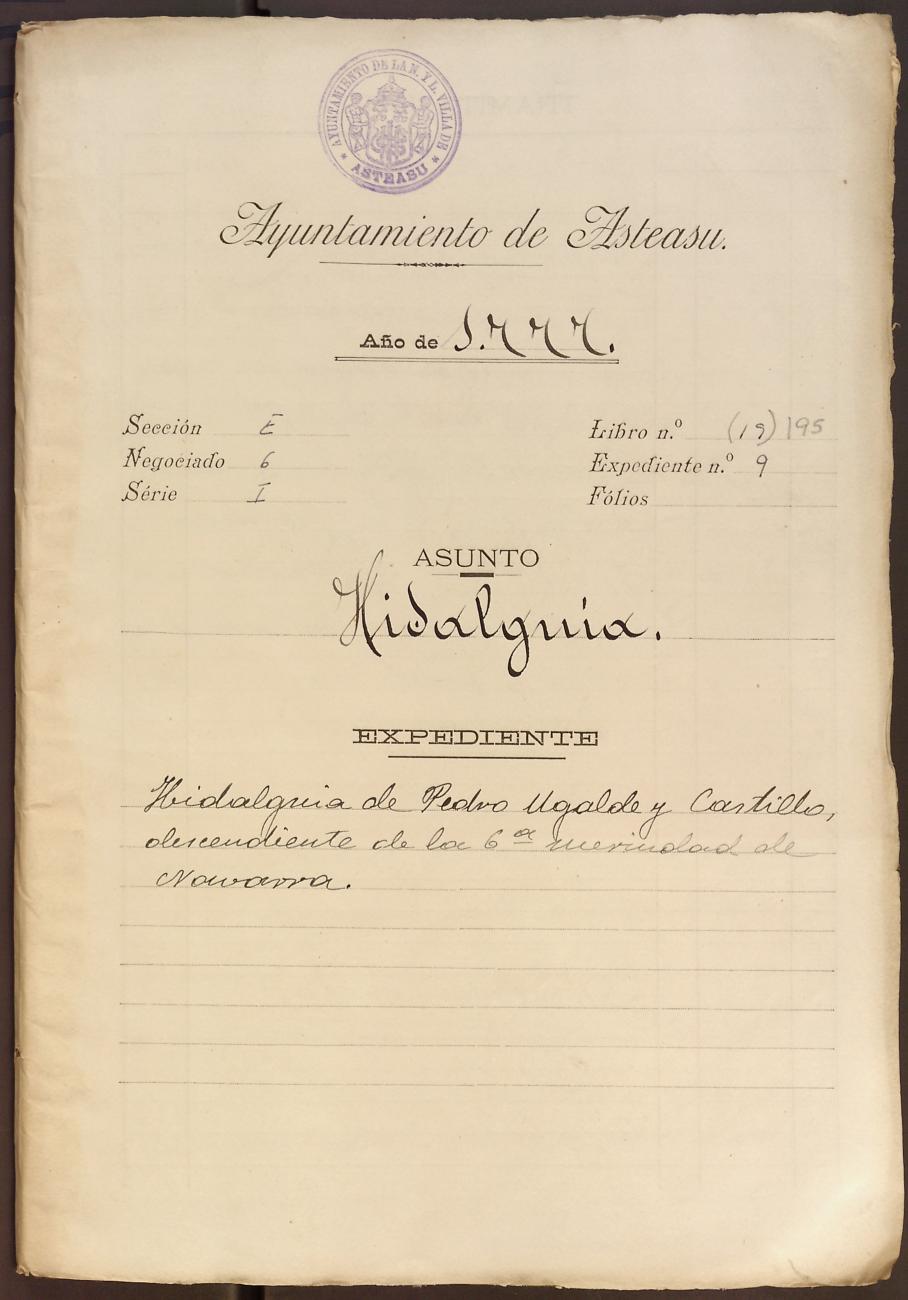 AYUNTAMIENTO DE LA N. Y L. VILLA DE
* ASTEASU *
Ayuntamiento de Asteasu.
Año de 1.777.
Sección E
Negociado 6
Série I
Libro n.º (19) 195
Expediente n.º 9
Fólios
ASUNTO
Hidalguia.
EXPEDIENTE
Hidalguia de Pedro Ugalde y Castillo,
descendiente de la 6ª merindad de
Navarra.